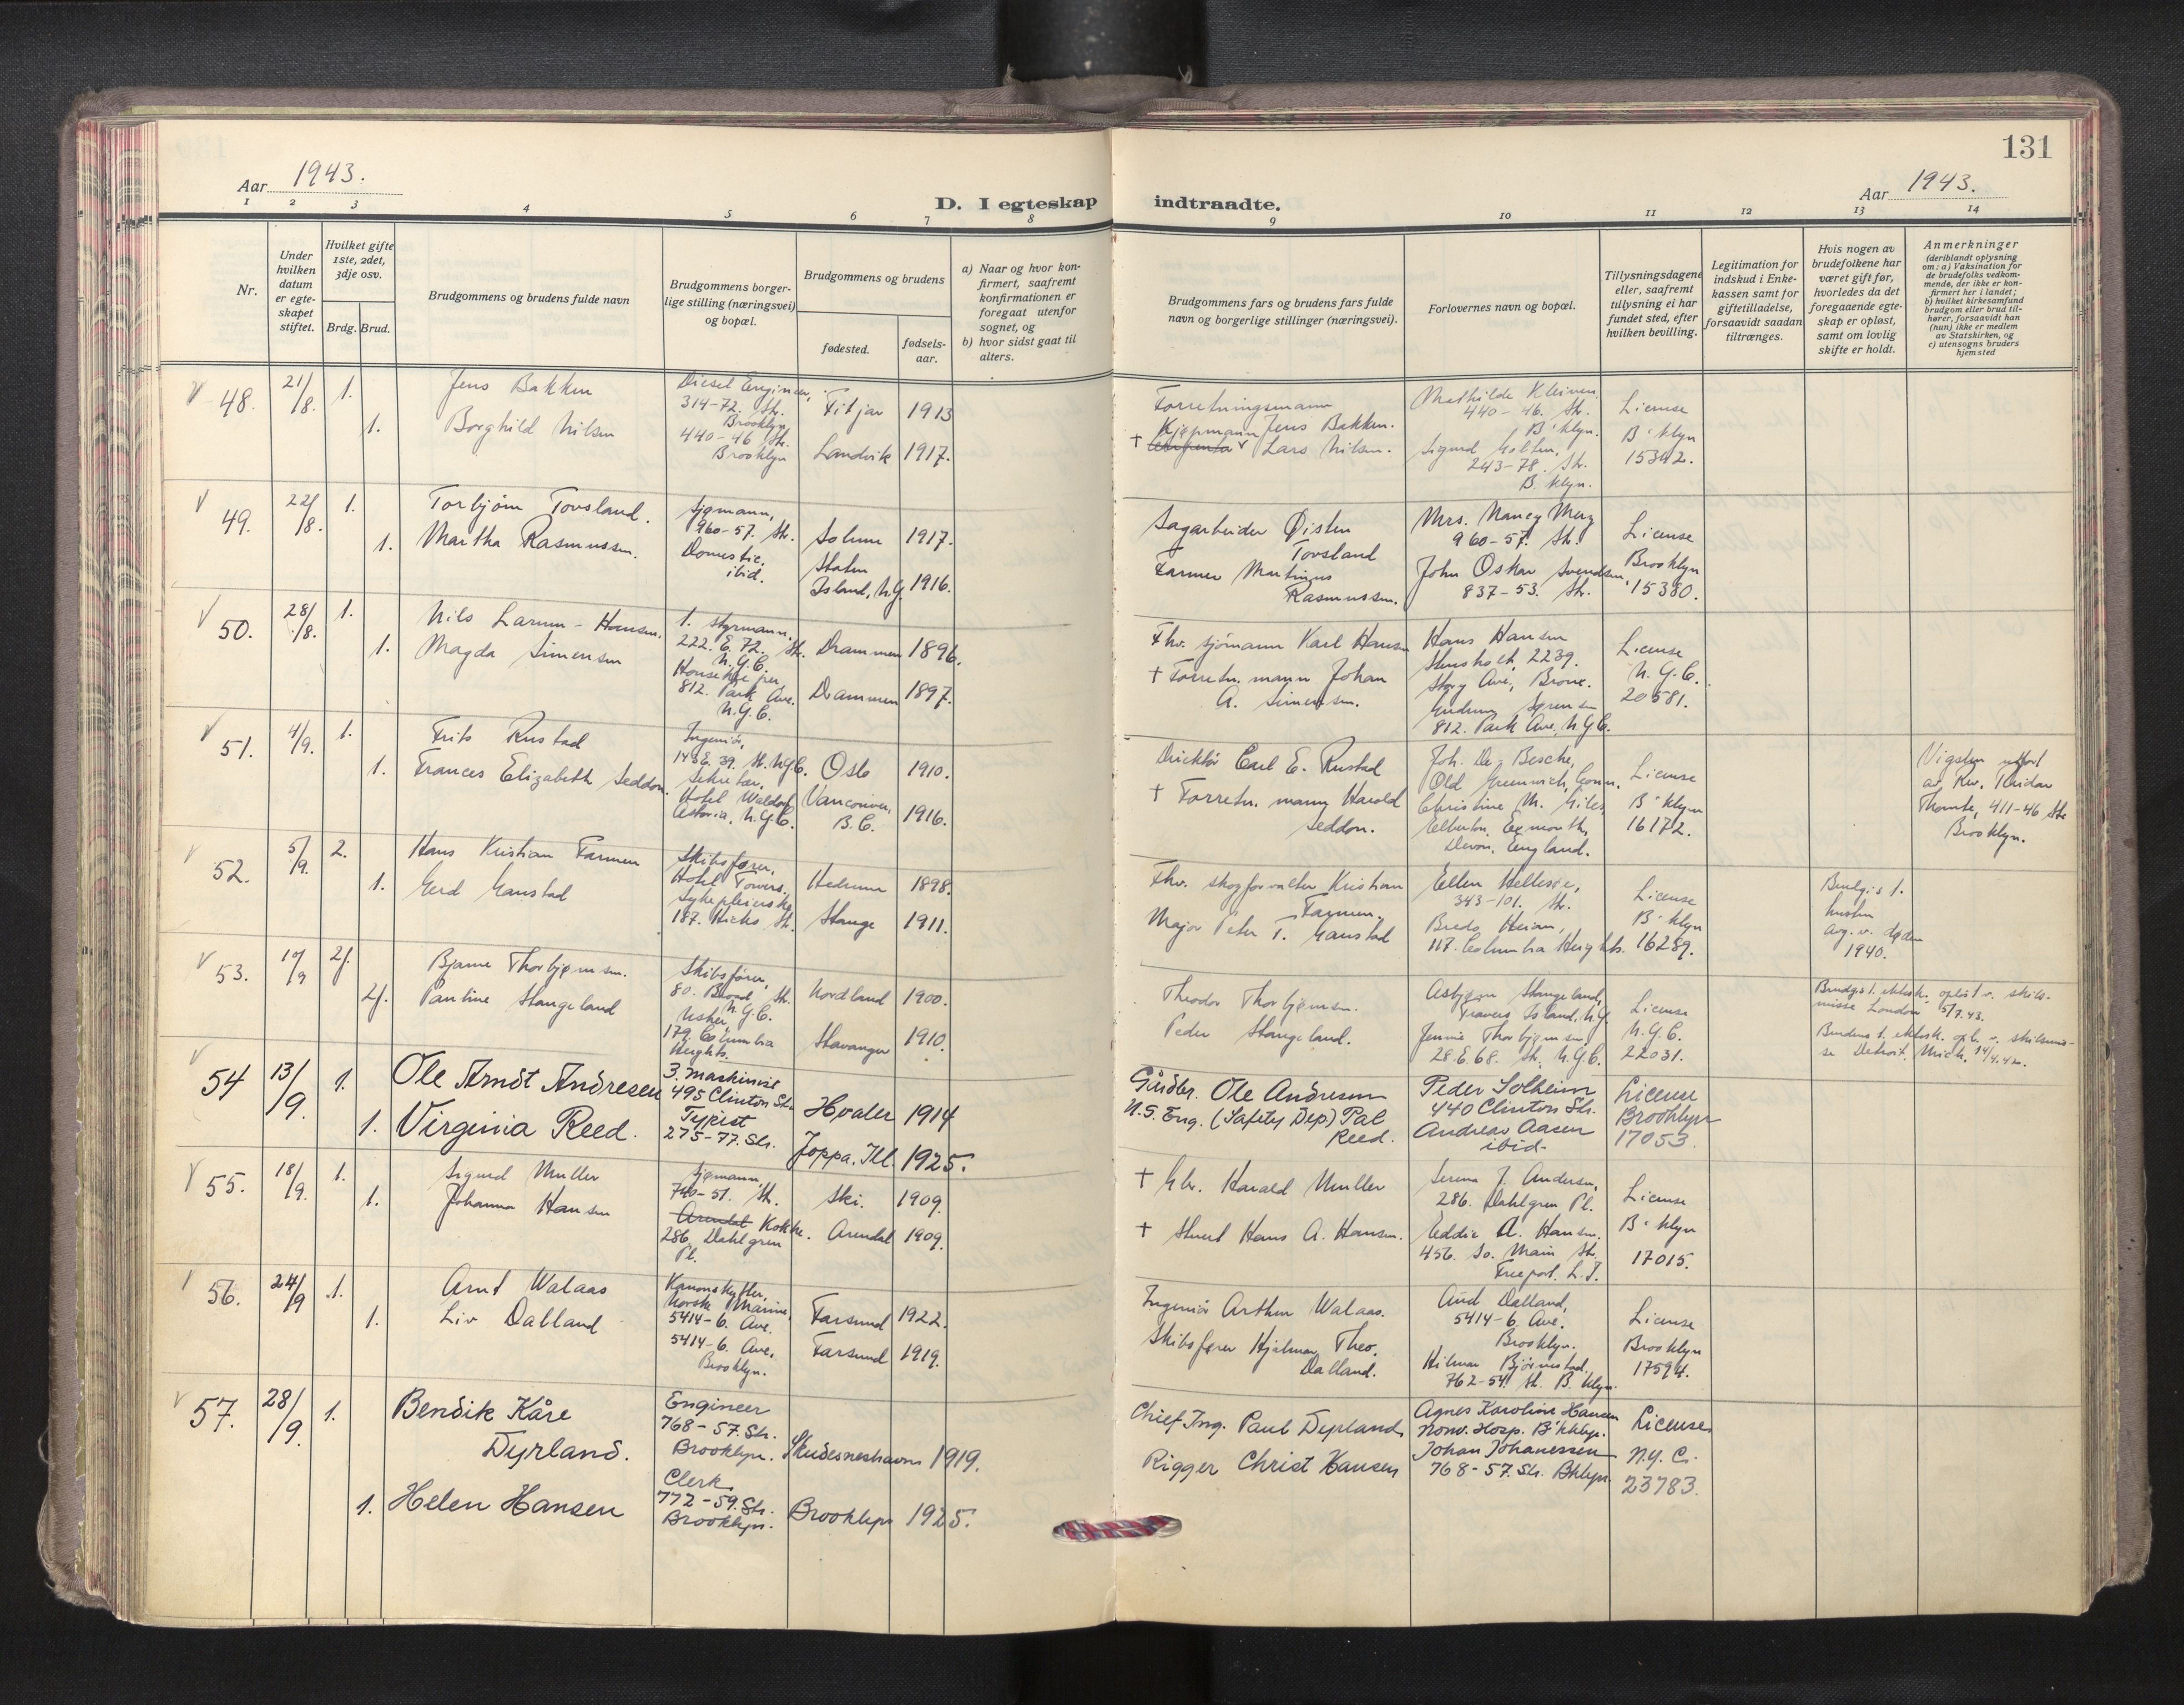 131
Aar 1943.
D. I egteskap indtraadte.
Aar 1943.
1 2 3 4 5 6 7 8 9 10 11 12 13 14
Nr.
Under hvilken datum er egteskapet stiftet.
Hvilket gifte 1ste, 2det, 3dje osv.
Brdg. Brud.
Brudgommens og brudens fulde navn
Brudgommens borgerlige stilling (næringsvei) og bopæl.
Brudgommens og brudens
fødested.
fødselsaar.
a) Naar og hvor konfirmert, saafremt konfirmationen er foregaat utenfor sognet, og
b) hvor sidst gaat til alters.
Brudgommens fars og brudens fars fulde navn og borgerlige stillinger (næringsvei).
Forlovernes navn og bopæl.
Tillysningsdagene eller, saafremt tillysning ei har fundet sted, efter hvilken bevilling.
Legitimation for indskud i Enkekassen samt for giftetilladelse, forsaavidt saadan tiltrænges.
Hvis nogen av brudefolkene har været gift før, hvorledes da det foregaaende egteskap er opløst, samt om lovlig skifte er holdt.
Anmerkninger (deriblandt oplysning om: a) Vaksination for de brudefolks vedkommende, der ikke er konfirmert her i landet; b) hvilket kirkesamfund brudgom eller brud tilhører, forsaavidt han (hun) ikke er medlem av Statskirken, og c) utensogns bruders hjemsted
V 48. 21/8. 1. Jens Bakken
Diesel Engineer, 314-72. Str. Brooklyn
Fitjar 1913
Forretningsmann Jens Bakken.
Mathilde Kleiven, 440-46. Str. B'klyn.
License B'klyn 15342.
1. Borghild Nilsen
440-46 Str. Brooklyn
Landvik 1917.
† Kjøpmann Lars Nilsen.
Sigurd 243-78. Str. B.klyn.
V 49. 22/8. 1. Torbjørn Tovsland.
Sjømann, 960-57. Str.
Solum 1917.
Sagarbeider Øisten Tovsland
Mrs. Nancy 960-57. Str.
License Brooklyn 15380.
1. Martha Rasmussen.
Domestic. ibid.
Staten Island, N.Y. 1916.
Farmer Martinus Rasmussen.
John Oskar Svendsen, 837-53. Str.
V 50. 28/8. 1. Nils Larum-Hansen.
1. styrmann, 222. E. 72. Str. N.Y.C.
Drammen 1896.
Fhv. sjømann Karl Hansen
Hans Hansen Stensholt, 2239. Ave, Bronx.
License N.Y.C. 20581.
1. Magda Simensen
812. Park Ave. N.Y.C.
Drammen 1897.
† Forretn. mann Johan A. Simensen.
Gudrun Sørensen 812. Park Ave. N.Y.C.
V 51. 4/9. 1. Frits Rustad
Ingeniør, E. 39. St. NYC.
Oslo 1910.
Direktør Carl E. Rustad
Joh. De Besche, Old Greenwich, Conn.
License B'klyn 16172.
Vigslen utført av Rev. Thomte, 411-46 Str. Brooklyn.
1. Frances Elizabeth Seddon.
Sekretær, Hotel Waldorf Astoria, N.Y.C.
Vancouver, B.C. 1916.
† Forretn. mann Harold Seddon.
Christine M. Giles, Exmouth, Devon, England.
V 52. 5/9. 2. Hans Kristian Farmen
Skibsfører, Hotel Towers,
Hedrum 1898.
Fhv. skogforvalter Kristian Farmen.
Ellen Hellesøe, 343-101. Str.
License B'klyn 16289.
Brudg.s 1. hustru avg. v. døden 1940.
1. Gerd Gaustad
Sykepleierske 187. Hicks Str.
Stange 1911.
Major Peter T. Gaustad
Heian, 117. Columbia Heights.
V 53. 10/9 2f. Bjarne Thorbjørnsen.
Skibsfører, 80. Broad Str. N.Y.C.
Nordland 1900.
Theodor Thorbjørnsen.
Asbjørn Stangeland, Travers Island, N.Y.
License N.Y.C. 22031.
Brudg.s 1. ektesk. opløst v. skilsmisse London 5/7.43.
2f. Pauline Stangeland
Usher, 179. Columbia Heights.
Stavanger 1910.
Peder Stangeland.
Jennie Thorbjørnsen, 28. E. 68. St. N.Y.C.
Brudens 1. ektesk. opl. v. skilsmisse Detroit, Mich. 14/4.42.
V 54 13/9. 1. Ole Arndt Andresen
3. maskinist 495 Clinton Str.
Hvaler 1914
Gårdbr. Ole Andresen
Peder Solheim 440 Clinton Str.
License Brooklyn 17053.
1. Virginia Reed.
Typist 275-77. Str.
Joppa, Ill. 1925.
U.S. Eng. (Safety Dep) Pal Reed.
Andreas Aasen ibid.
V 55. 18/9. 1. Sigurd Muller
Sjømann, 740-51. Str.
Ski. 1909.
† Gbr. Harald Muller
Serena J. Andersen, 286. Dahlgren Pl.
License B'klyn 17015.
1. Johanna Hansen
Arendal Kokke. 286, Dahlgren Pl.
Arendal 1909.
† Stuert Hans A. Hansen.
Eddie A. Hansen. 456. So. Main Str. Freeport. L.I.
56. 24/9 1. Arnt Walaas
Kanonskytter, Norsk Marine, 5414-6. Ave.
Farsund 1922.
Ingeniør Arthur Walaas.
Aud Dalland, 5414-6. Ave. Brooklyn.
License Brooklyn 17594.
1. Liv Dalland
5414-6. Ave, Brooklyn.
Farsund 1919.
Skibsfører Hjalmar Theo. Dalland.
Hilmar Bjørnestad, 762-54. St. B.klyn.
V 57. 28/9. 1. Bendik Kåre Dyrland.
Engineer 768-57. Str. Brooklyn.
Skudesneshavn 1919.
Chief Ing. Paul Dyrland
Agnes Karoline Hansen Norw. Hosp. B'khlyn.
License N.Y.C. 23783.
1. Helen Hansen
Clerk 772-59. Str. Brooklyn.
Brooklyn 1925.
Rigger Christ Hansen
Johan Johanessen 768-57. Str. Bklyn.